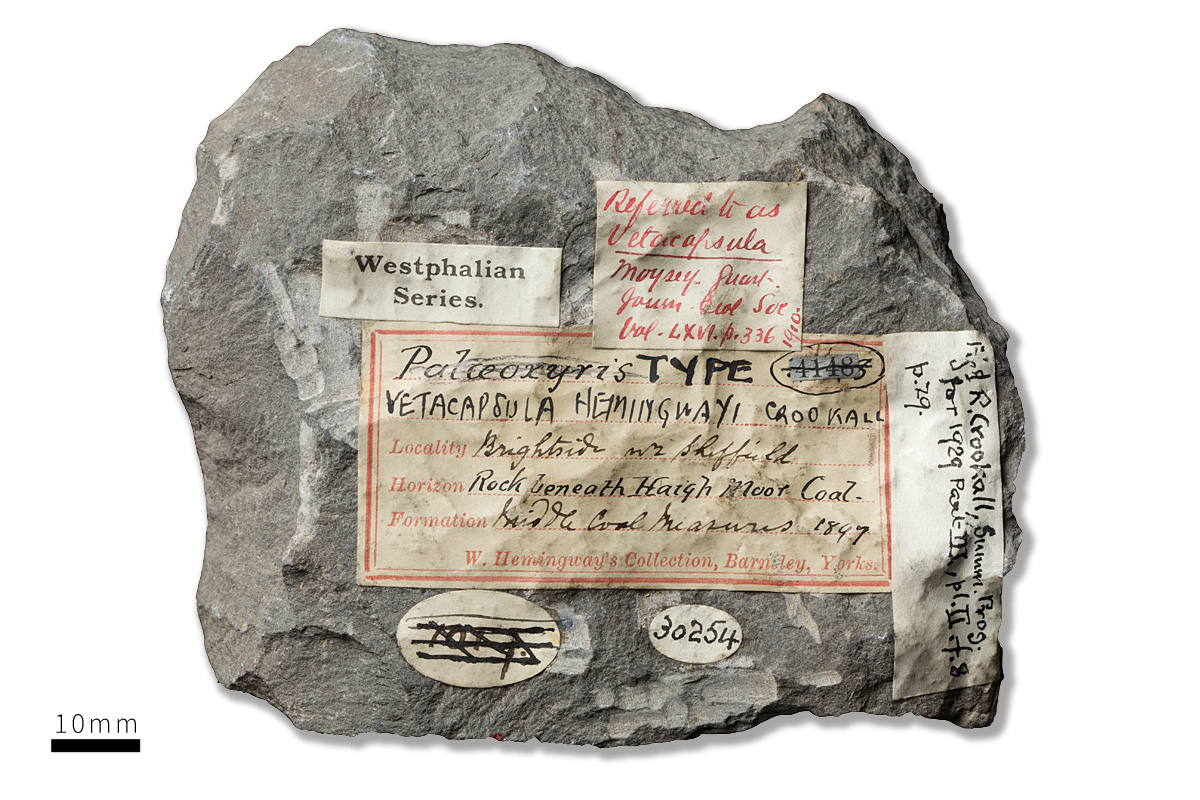 Westphalian
Series.
Referred to as
Vetacapsula
Moysey. Quart.
Journ. Geol Soc
Vol. LXVI. p. 336 1910.
Palæoxyris TYPE 41483
VETACAPSULA HEMINGWAYI CROOKALL
Locality Brightside nr Sheffield
Horizon Rock beneath Haigh Moor Coal-
Formation Middle Coal Measures 1897
W. Hemingway's Collection, Barnsley, Yorks.
Fig'd R. Crookall, Summ. Prog.
for 1929 Part III, pl. II f. 8
p. 79.
30254
10mm